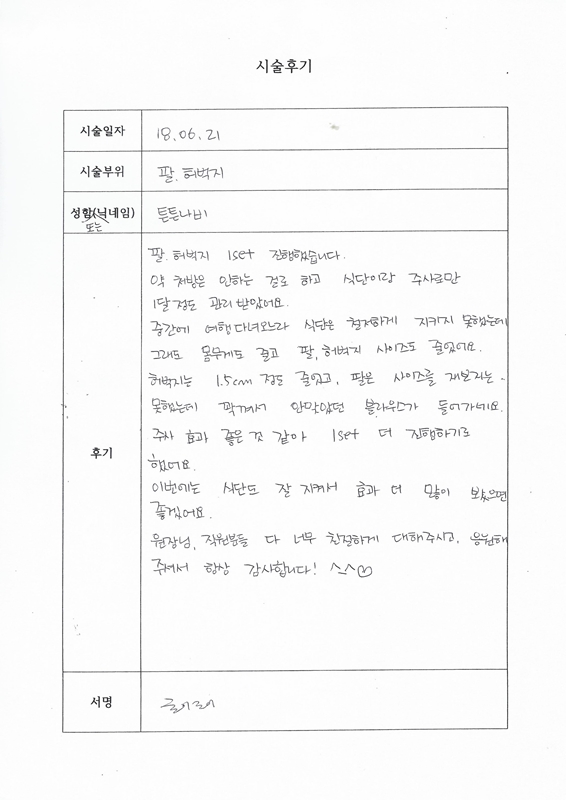 시술후기
시술일자 18.06.21
시술부위 팔.허벅지
성함(닉네임) 튼튼나비
또는
후기
팔.허벅지 1set 진행했습니다.
약 처방은 안하는 걸로 하고 식단이랑 주사로만
1달정도 관리 받았어요.
중간에 여행 다녀오느라 식단은 철저하게 지키지 못했는데
그래도 몸무게도 줄고 팔, 허벅지 사이즈도 줄었어요.
허벅지는 1.5cm 정도 줄었고, 팔은 사이즈를 재보지는
못했는데 꽉껴서 안맞았던 블라우스가 들어가네요.
주사 효과 좋은 것 같아 1set 더 진행하기로
했어요.
이번에는 식단도 잘 지켜서 효과 더 많이 봤으면
좋겠어요.
원장님, 직원분들 다 너무 친절하게 대해주시고, 응원해
주셔서 항상 감사합니다! ^^♡
서명